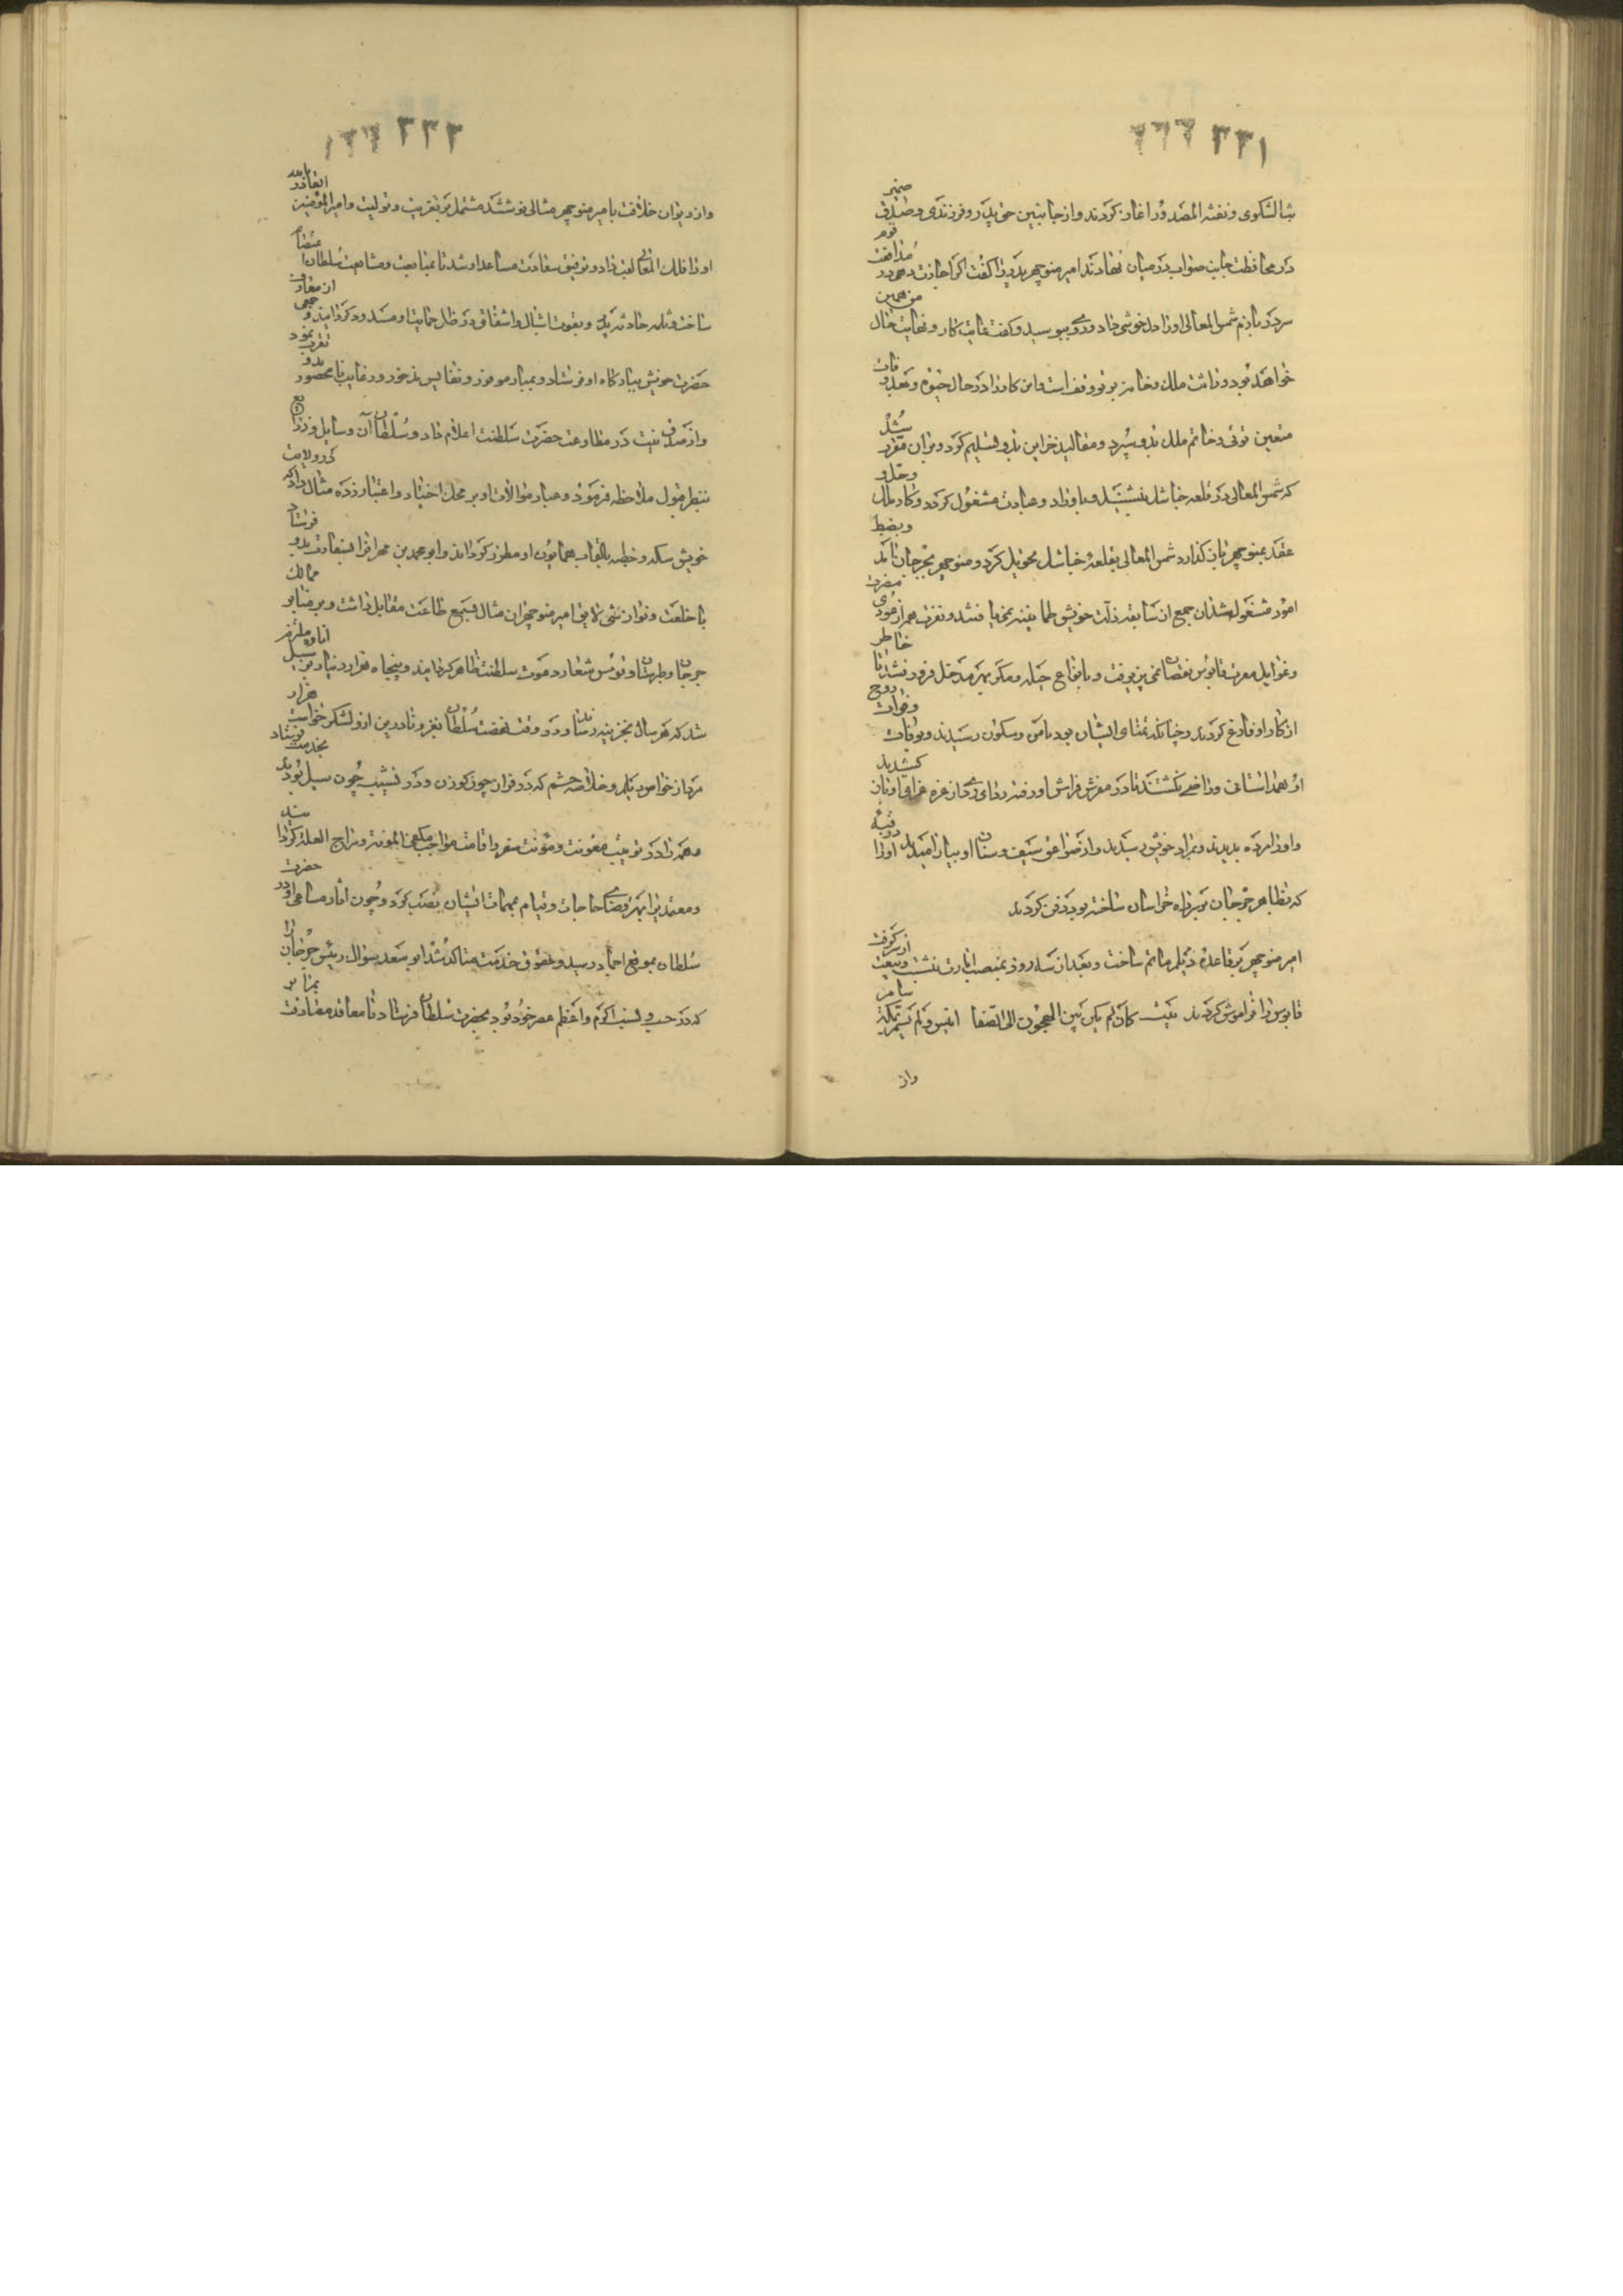 ۲۳۱
بثّ الشکوی و نفثة المصدور آغاز کردند و از جانبین حق پدر و فرزندی و صدق ضمیر
در محافظت جانب صواب در میان نهادند امیر منوچهر پدر را گفت اگر اجازت دهی در مدافعت قوم
سر در بازم شمس المعالی او را دلخوشی داد و روی ببوسید و گفت غایت کار و نهایت حال من همین
خواهد بود و وراثت ملک و خانه بر تو وقف است و این کار را در حال حیوة و بعد وفات
متعین توئی و خاتم ملک بدو سپرد و مقالید خزاین بدو تسلیم کرد و بران مقرر شد
که شمس المعالی در قلعه جناشک بنشیند و باوراد و عبادت مشغول گردد و کار ملک و حل و
عقد بمنوچهر باز گذارد شمس المعالی بقلعهٔ جناشک تحویل کرد و منوچهر بجرجان آمد و بضبط
امور مشغول شد آن جمع از سابقه زلت خویش طمانینه نمی یافتند و نفرت همی از معرت
و غوایل معرت قابوس نقصان نمی پذیرفت و بانواع حیله و مکر بهر مدخل فرو میشدند تا خاطر
از کار او فارغ کردند و چنانکه تمنای ایشان بود بامن و سکون رسیدند و بوفات
او همداستان و راضی نگشتند تا در مفرش فراش او رفتند و ردای وی از غرهٔ غرای او باز کشیدند
و او را مرده بدیدند و بمراد خویش رسیدند و از صواعق سیف و سنان او بیارامیدند او را در قبهٔ
که بظاهر جرجان بر راه خراسان ساخته بود دفن کردند
امیر منوچهر بر قاعدهٔ دیلم ماتم ساخت و بعد از سه روز بمنصب امارت بنشست و بیعت از سر گرفت
قابوس را فراموش کردند بیت کان لم یکن بین الحجون الی الصفا انیس ولم یسمر بمکة سامر
واز
۲۳۲
و از دیوان خلافت بامیر منوچهر مثالی نوشتند مشتمل بر تعزیت و تولیت و امیر المؤمنین القادر بالله
او را فلک المعالی لقب داد و توفیق سعادت مساعد او شد تا بمتابعت و مشایعت سلطان اعتصام
ساخت و ثلمه حادثه پدر و بقوت اشبال و اشفاق و ظل حمایت او مسدود گردانید و جمعی از معارف
حضرت خویش ببارگاه او فرستاد و بمبار موفور و نفایس مذخور و رغایب نامحصور بدو تقرب نمود
و از صدق نیت در مطاوعت حضرت سلطنت اعلام داد و سلطان آن وسایل و ذرایع
بنظر قبول ملاحظه فرمود و عیار موالات او بر محک اختیار و اعتبار زده مثال داد که در ولایت
خویش سکه و خطبه بالقاب همایون او مطرز گرداند و ابو محمد بن مهران را بسفارت بدو فرستاد
با خلعت و نوازشی لایق امیر منوچهر آن مثال بسمع طاعت مقابل داشت و بر منابر ممالک
جرجان و طبرستان و قومس شعار دعوت سلطنت ظاهر گردانید و پنجاه هزار دینار بر سبیل اتاوه ملتزم
شد که هر سال بخزینه رساند و در وقت نهضت سلطان بغزو ناردین ازو لشکر خواست هزار
مرد از خواص دیلم و خلاصه حشم که در فراز چون گوزن و در نشیب چون سیل بودند بخدمت فرستاد
همه را در ترتیب معونت و مؤنت سفر و اقامت مواجب مکفی المؤنة و مزاح العلة گردانید
و معتمدی را بهر قضای حاجات و قیام بمهمات ایشان نصب کرد و چون آثار مساعی او در حضرت
سلطان بموقع احماد رسید و حقوق خدمت متاکد شد ابو سعد سوال رئیس جرجان را
که در حسب و نسب اکرم و اعظم عصر خود بود بحضرت سلطان فرستاد تا معاقد مصادقت بمناصر